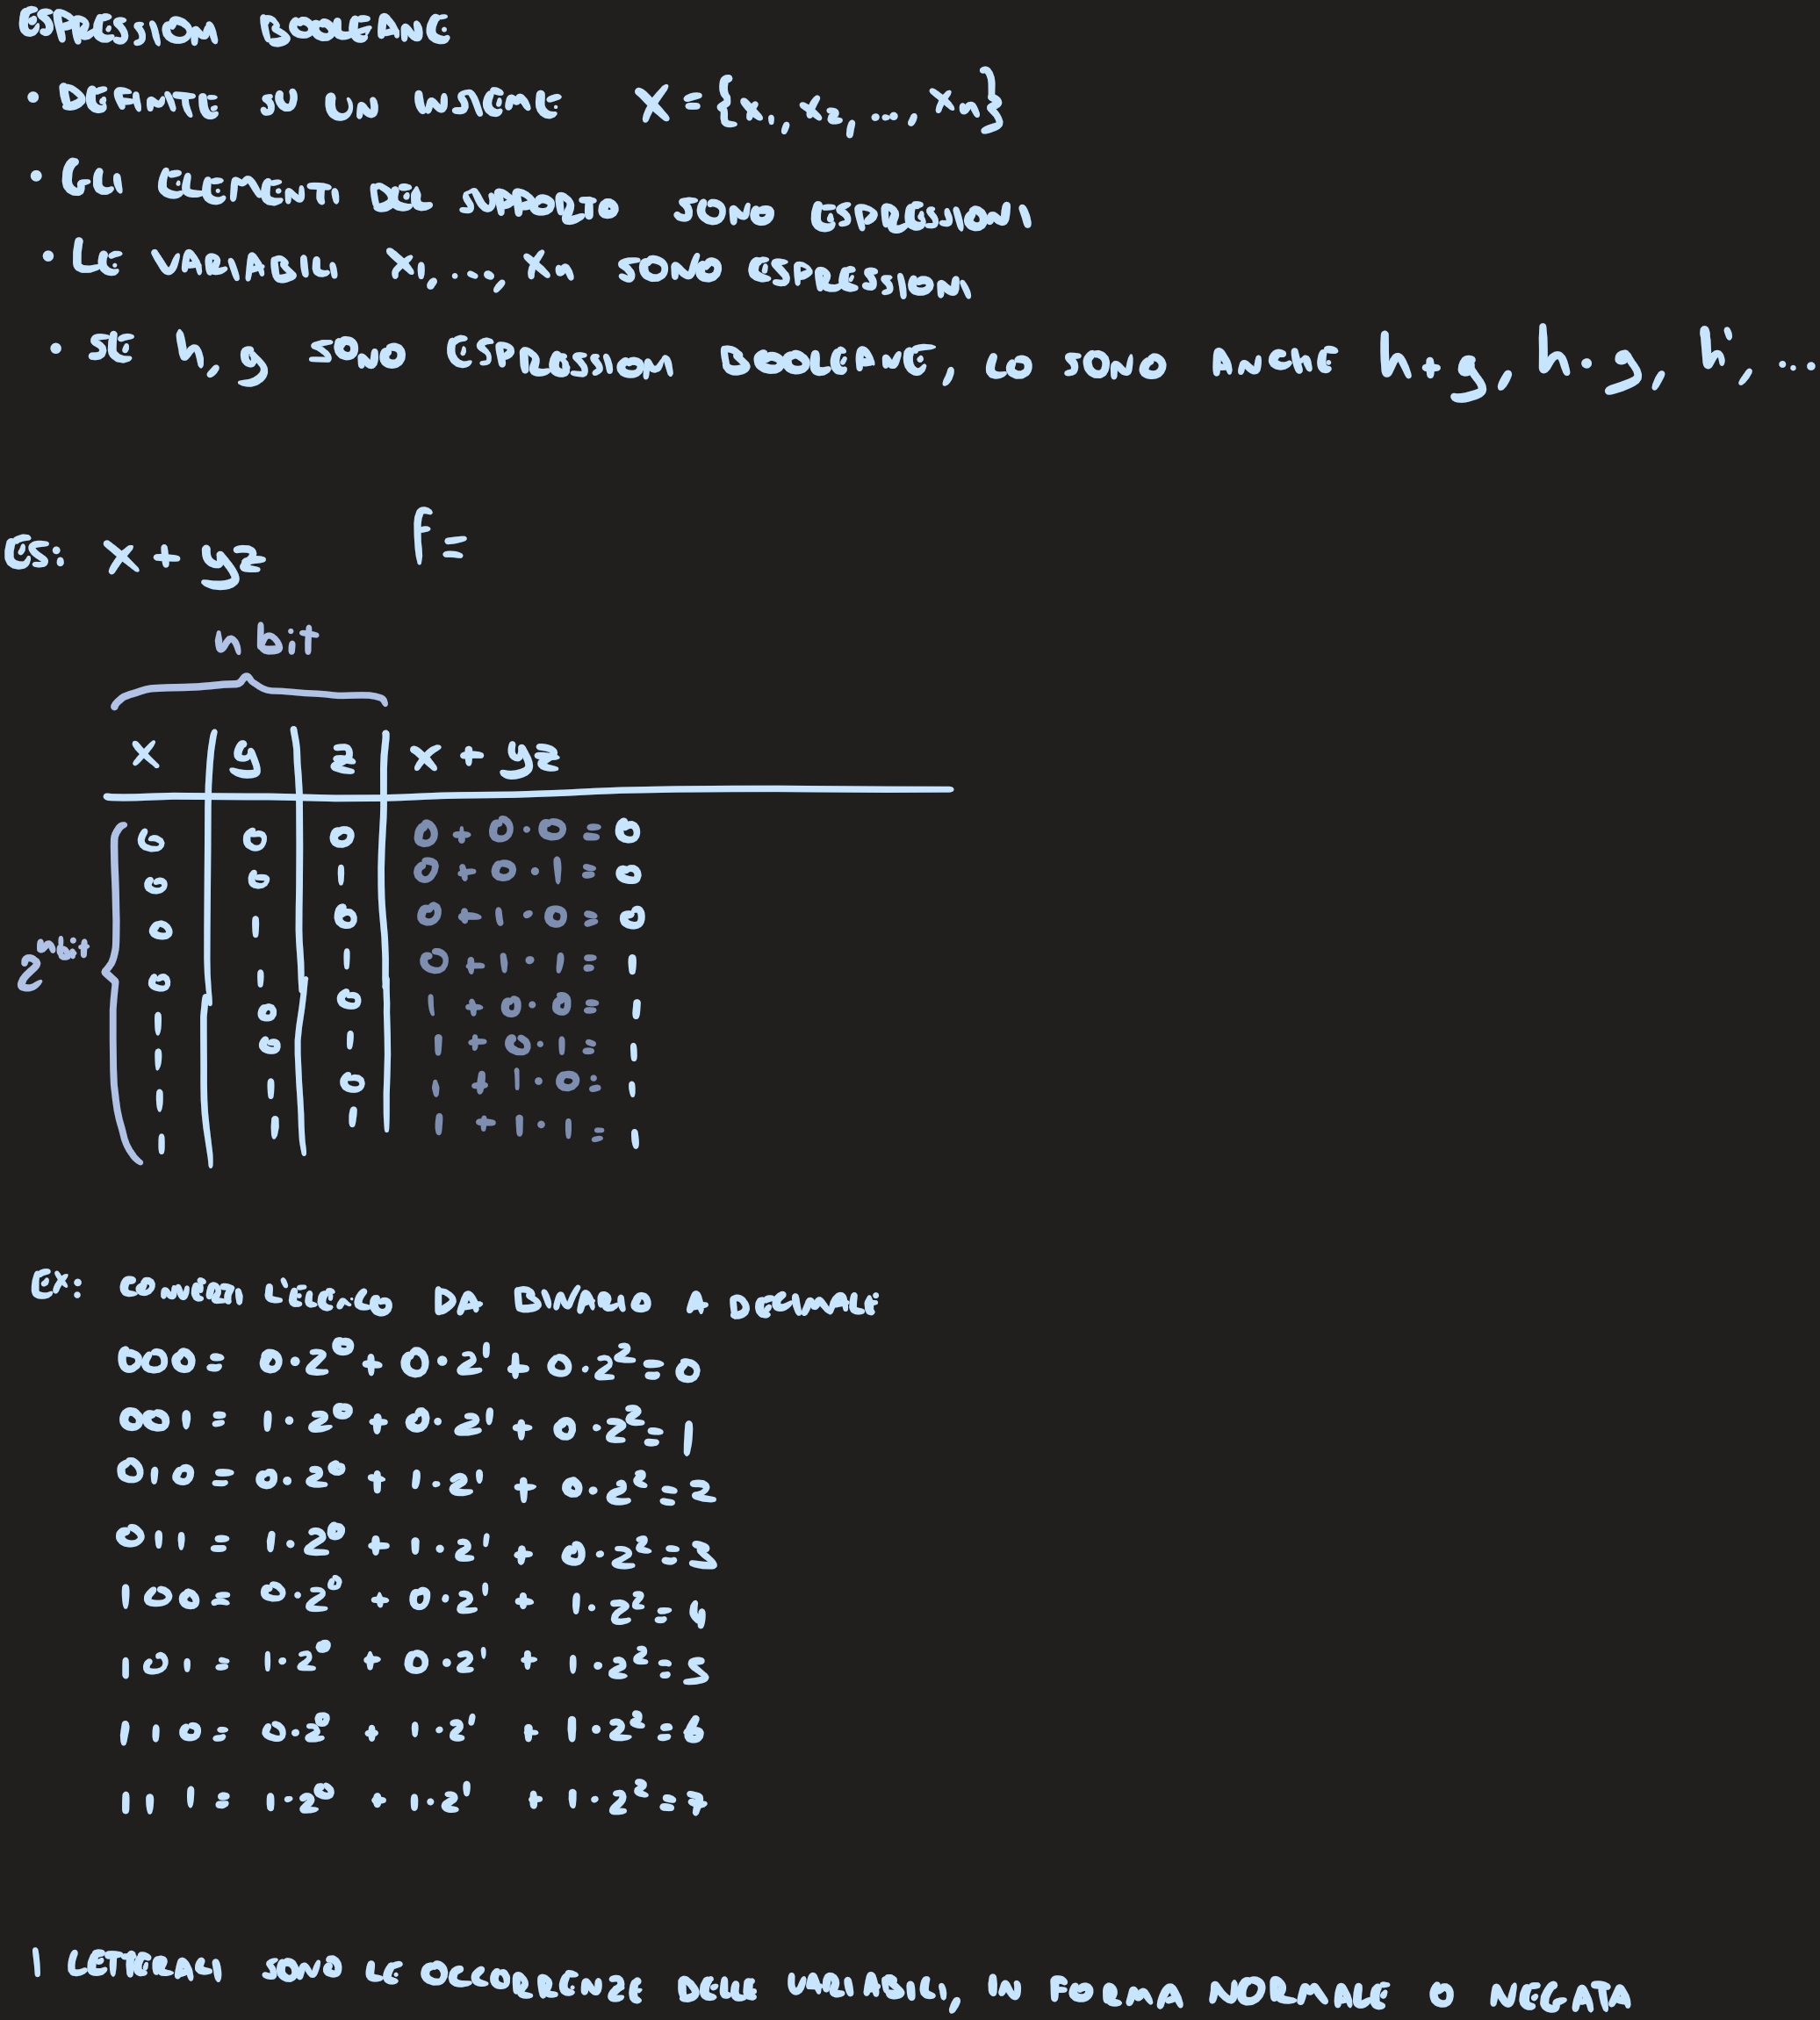 ESPRESSIONI BOOLEANE
• DEFINITE SU UN INSIEME X={x1, x2, ..., xn}
• GLI ELEMENTI DEL SUPPORTO SONO ESPRESSIONI
• LE VARIABILI x1, ..., xn SONO ESPRESSIONI
• SE h, g SONO ESPRESSIONI BOOLEANE, LO SONO ANCHE h+g, h·g, h', ...
ES: x + yz f=
n bit
x y z x + yz
0 0 0 0 + 0·0 = 0
0 0 1 0 + 0·1 = 0
0 1 0 0 + 1·0 = 0
0 1 1 0 + 1·1 = 1
2^nbit
1 0 0 1 + 0·0 = 1
1 0 1 1 + 0·1 = 1
1 1 0 1 + 1·0 = 1
1 1 1 1 + 1·1 = 1
EX: CONVERTI L'ELENCO DA BINARIO A DECIMALE
000 = 0·2^0 + 0·2^1 + 0·2^2 = 0
001 = 1·2^0 + 0·2^1 + 0·2^2 = 1
010 = 0·2^0 + 1·2^1 + 0·2^2 = 2
011 = 1·2^0 + 1·2^1 + 0·2^2 = 3
100 = 0·2^0 + 0·2^1 + 1·2^2 = 4
101 = 1·2^0 + 0·2^1 + 1·2^2 = 5
110 = 0·2^0 + 1·2^1 + 1·2^2 = 6
111 = 1·2^0 + 1·2^1 + 1·2^2 = 7
I LETTERALI SONO LE OCCORRENZE DELLE VARIABILI, IN FORMA NORMALE O NEGATA